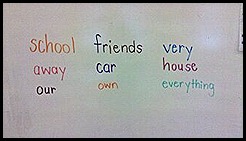 school friends very
away car house
our own everything